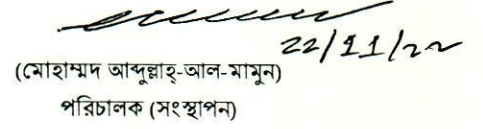 22/11/22
(মোহাম্মদ আব্দুল্লাহ্-আল-মামুন)
পরিচালক (সংস্থাপন)